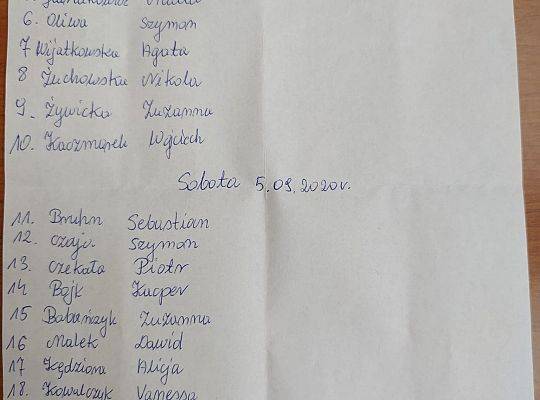 6. Oliwa Szymon
7 Wijatkowska Agata
8 Żuchowska Nikola
9. Żywicka Zuzanna
10. Kaczmarek Wojciech
Sobota 5.09.2020r.
11. Bruhn Sebastian
12. Szymon
13. Czekała Piotr
14 Bojk Kacper
15 Babeńczyk Zuzanna
16 Malek Dawid
17 Kędziora Alicja
18. Kowalczyk Vanessa